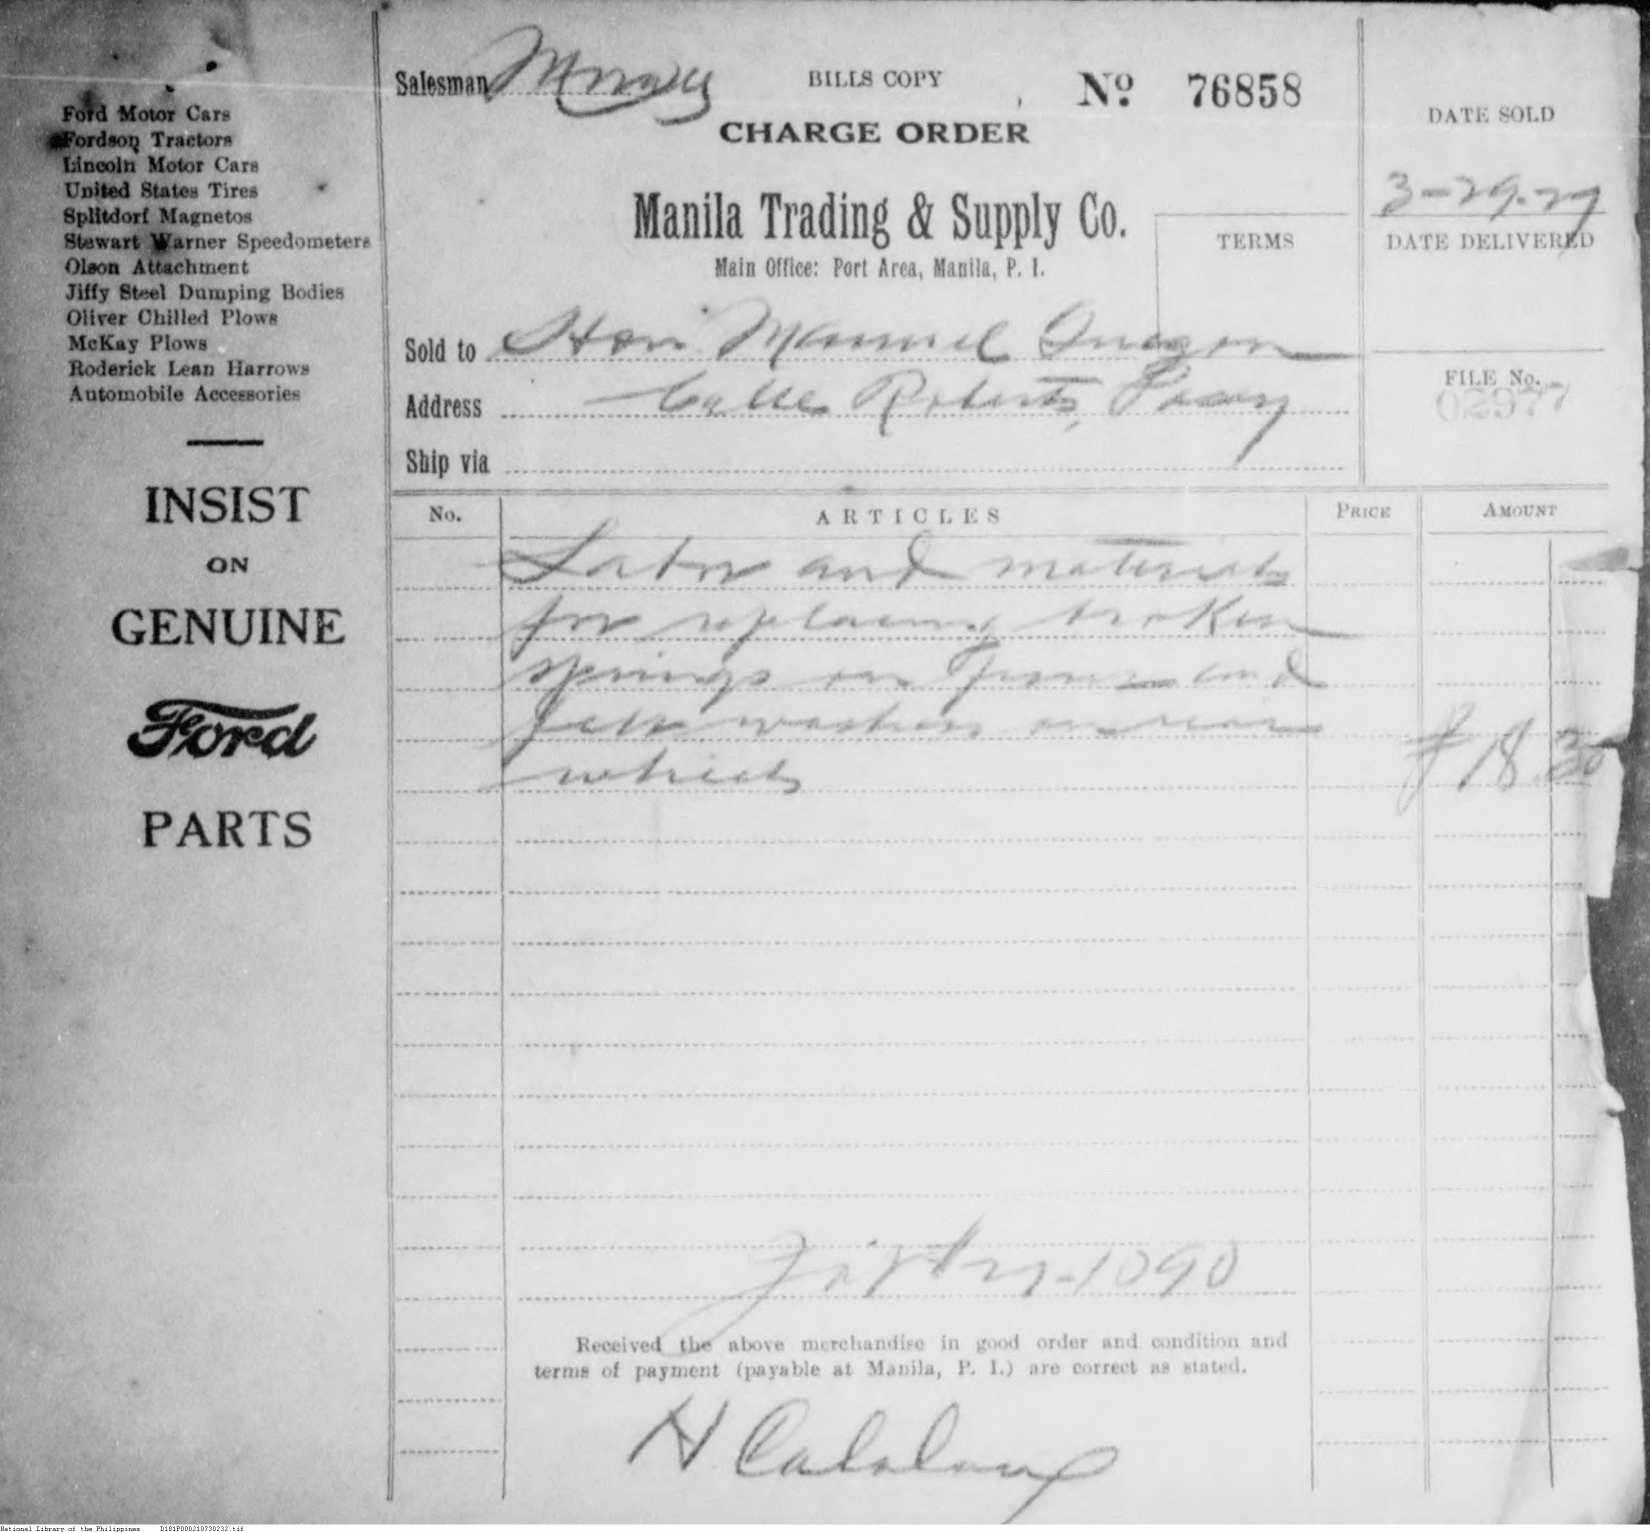 Ford Motor Cars
Fordson Tractors
Lincoln Motor Cars
United States Tires
Splitdorf Magnetos
Stewart Warner Speedometers
Olson Attachment
Jiffy Steel Dumping Bodies
Oliver Chilled Plows
McKay Plows
Roderick Lean Harrows
Automobile Accessories
INSIST
ON
GENUINE
Ford
PARTS
Salesman
BILLS COPY
No 76858
CHARGE ORDER
Manila Trading & Supply Co.
Main Office: Port Area, Manila, P. I.
TERMS
DATE SOLD
3-29-29
DATE DELIVERED
FILE No.
02977
Sold to Hon Manuel Quezon
Address Calle Roberts, Pasay
Ship via
No. ARTICLES PRICE AMOUNT
Labor and materials
for replacing broken
springs on front and
felt washers on rear
wheels ₱18 30
1090
Received the above merchandise in good order and condition and
terms of payment (payable at Manila, P. I.) are correct as stated.
H
National Library of the Philippines D181P000210730232.tif